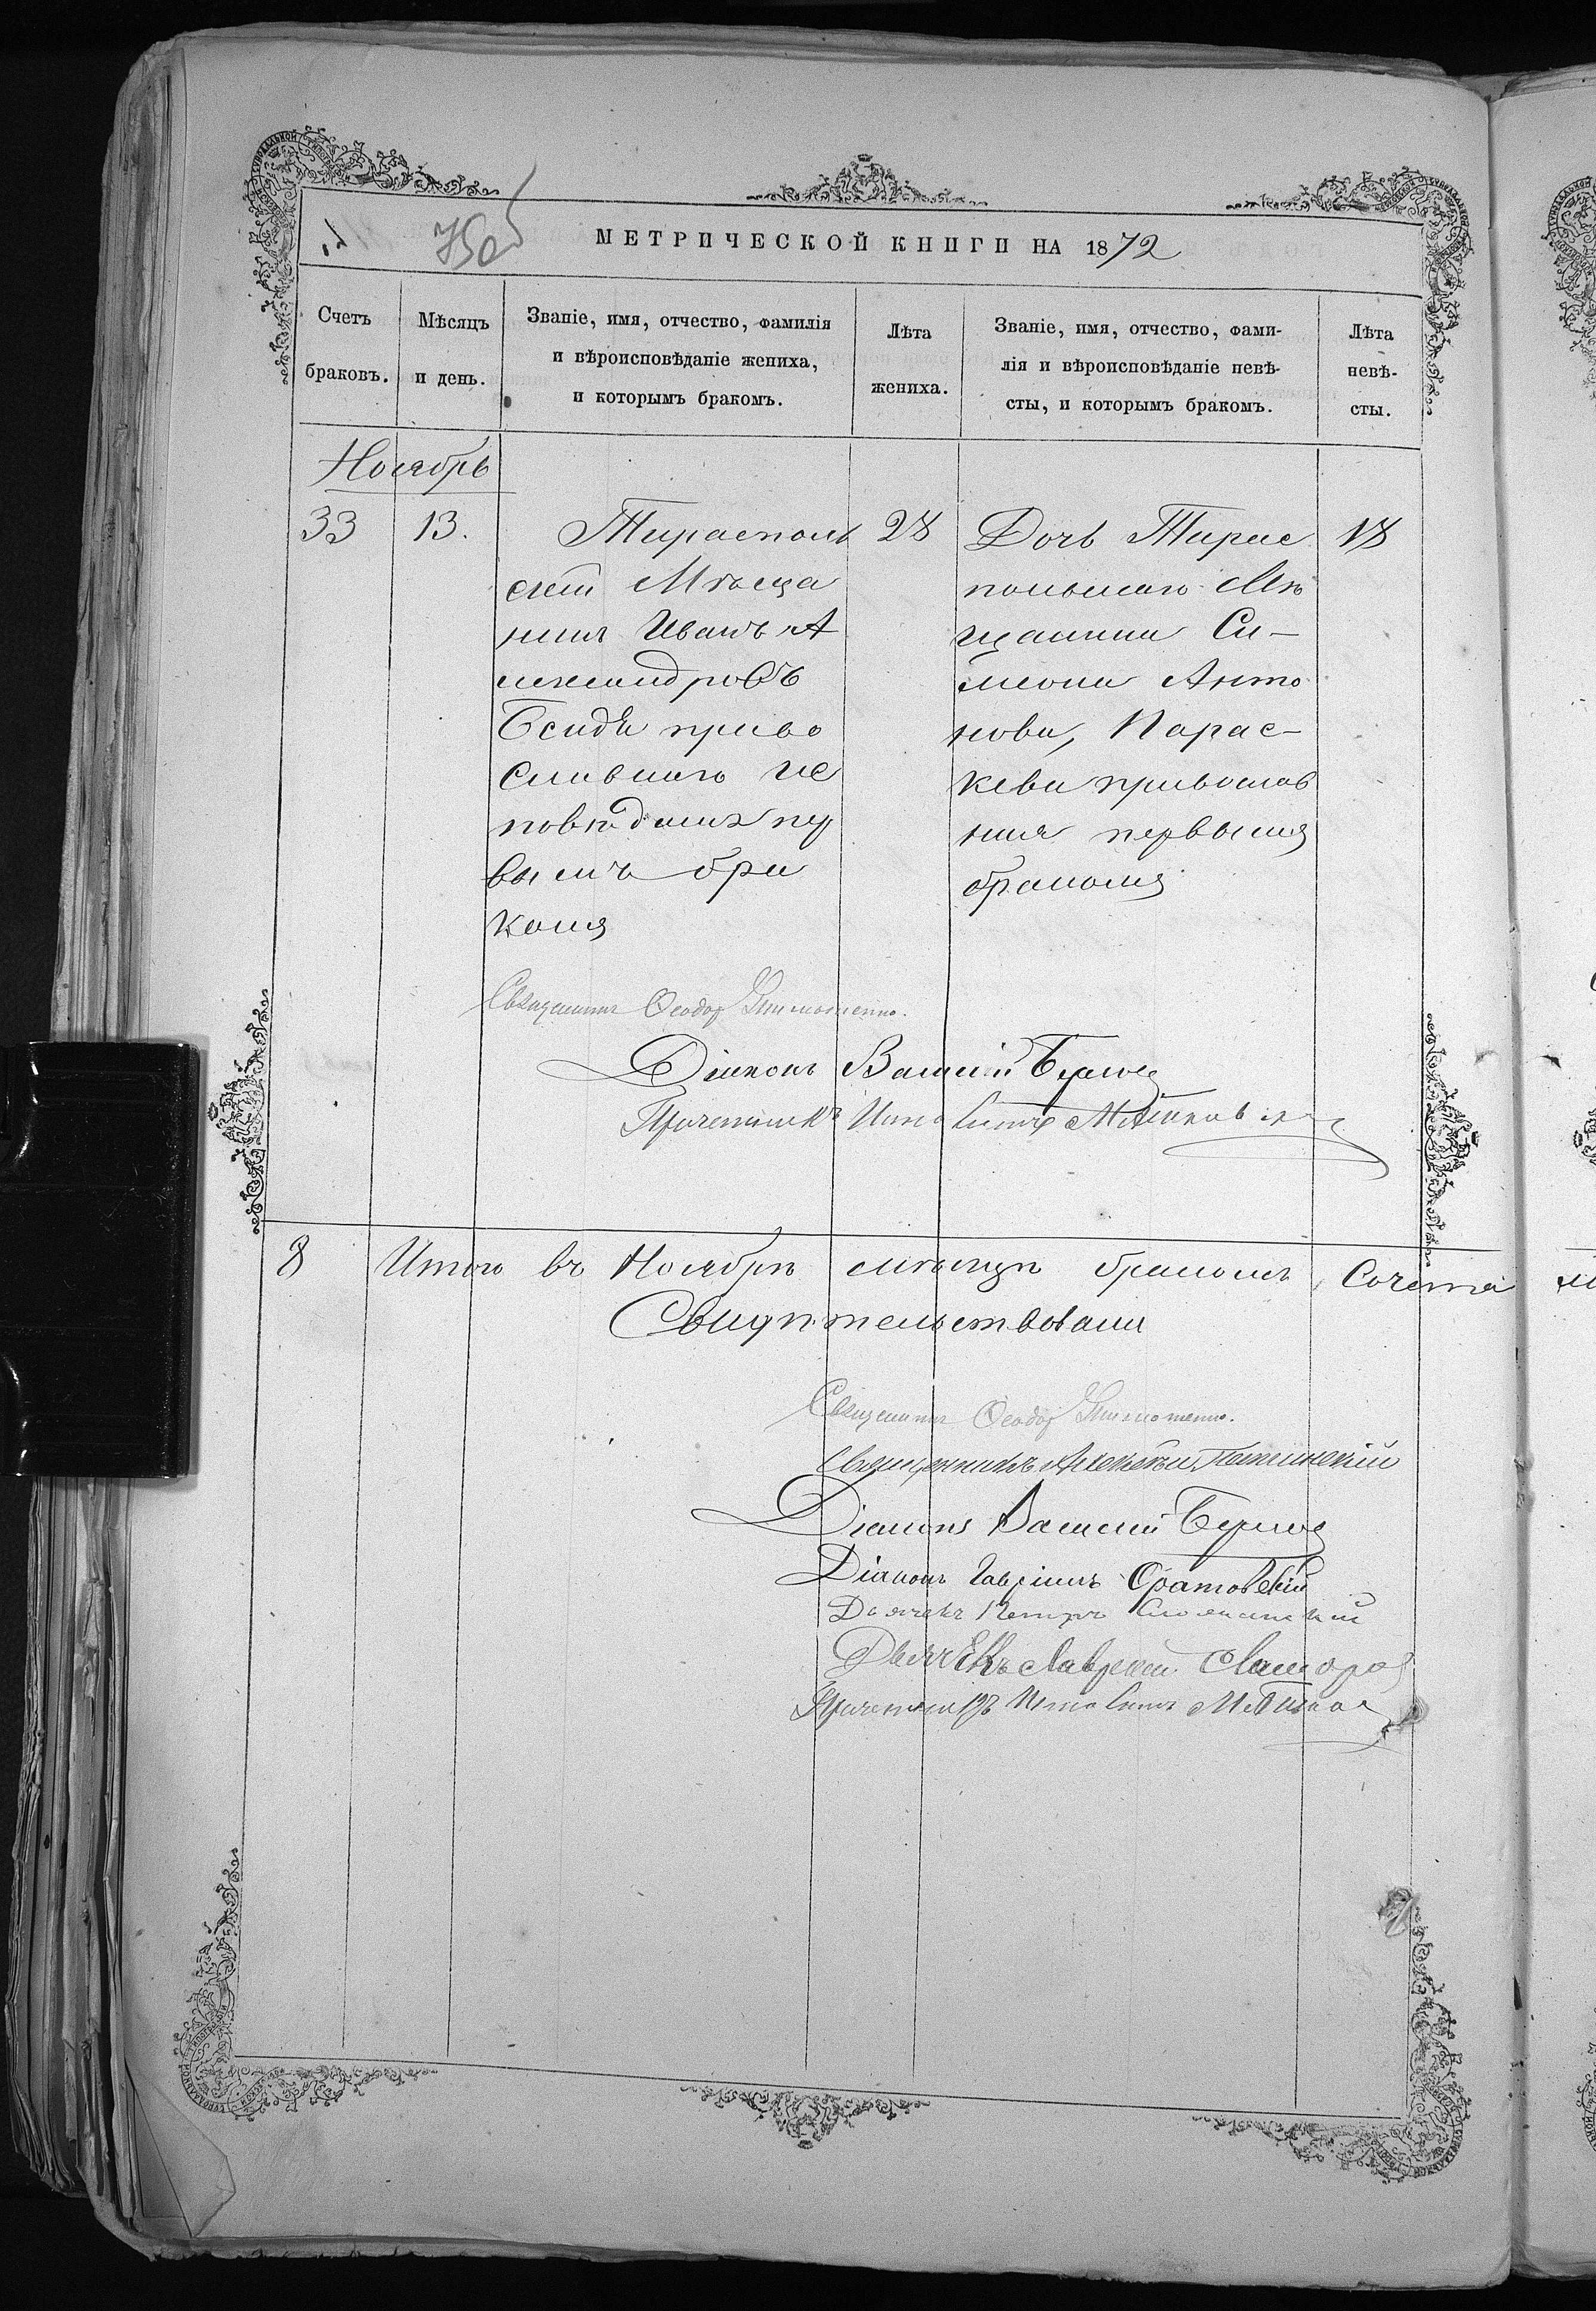 750
МЕТРИЧЕСКОЙ КНИГИ НА 1872
Счетъ браковъ.
Мѣсяцъ и день.
Званіе, имя, отчество, фамилія
и вѣроисповѣданіе жениха,
и которымъ бракомъ.
Лѣта жениха.
Званіе, имя, отчество, фами-
лія и вѣроисповѣданіе невѣ-
сты, и которымъ бракомъ.
Лѣта невѣ-
сты.
Ноябрь
33
13.
Тирасполь
скій Мѣща
нинъ Иванъ А
лександровъ
право
славнаго ис
повѣданія пер
вымъ бра
комъ
28
Дочь Тирас
польскаго Мѣ
щанина Си-
меона Анто
нова, Парас-
кева православ
ная первымъ
бракомъ
18
Священникъ Ѳеодор
Діаконъ Василій
Причетникъ
8 Итого въ Ноябрѣ мѣсяцѣ бракомъ Сочета
Свидѣтельствовали
Священникъ Ѳеодор
Священникъ Алексѣй
Діаконъ Василій
Діаконъ Гавріилъ
Дьячекъ Петръ
Дьячекъ
Причетникъ